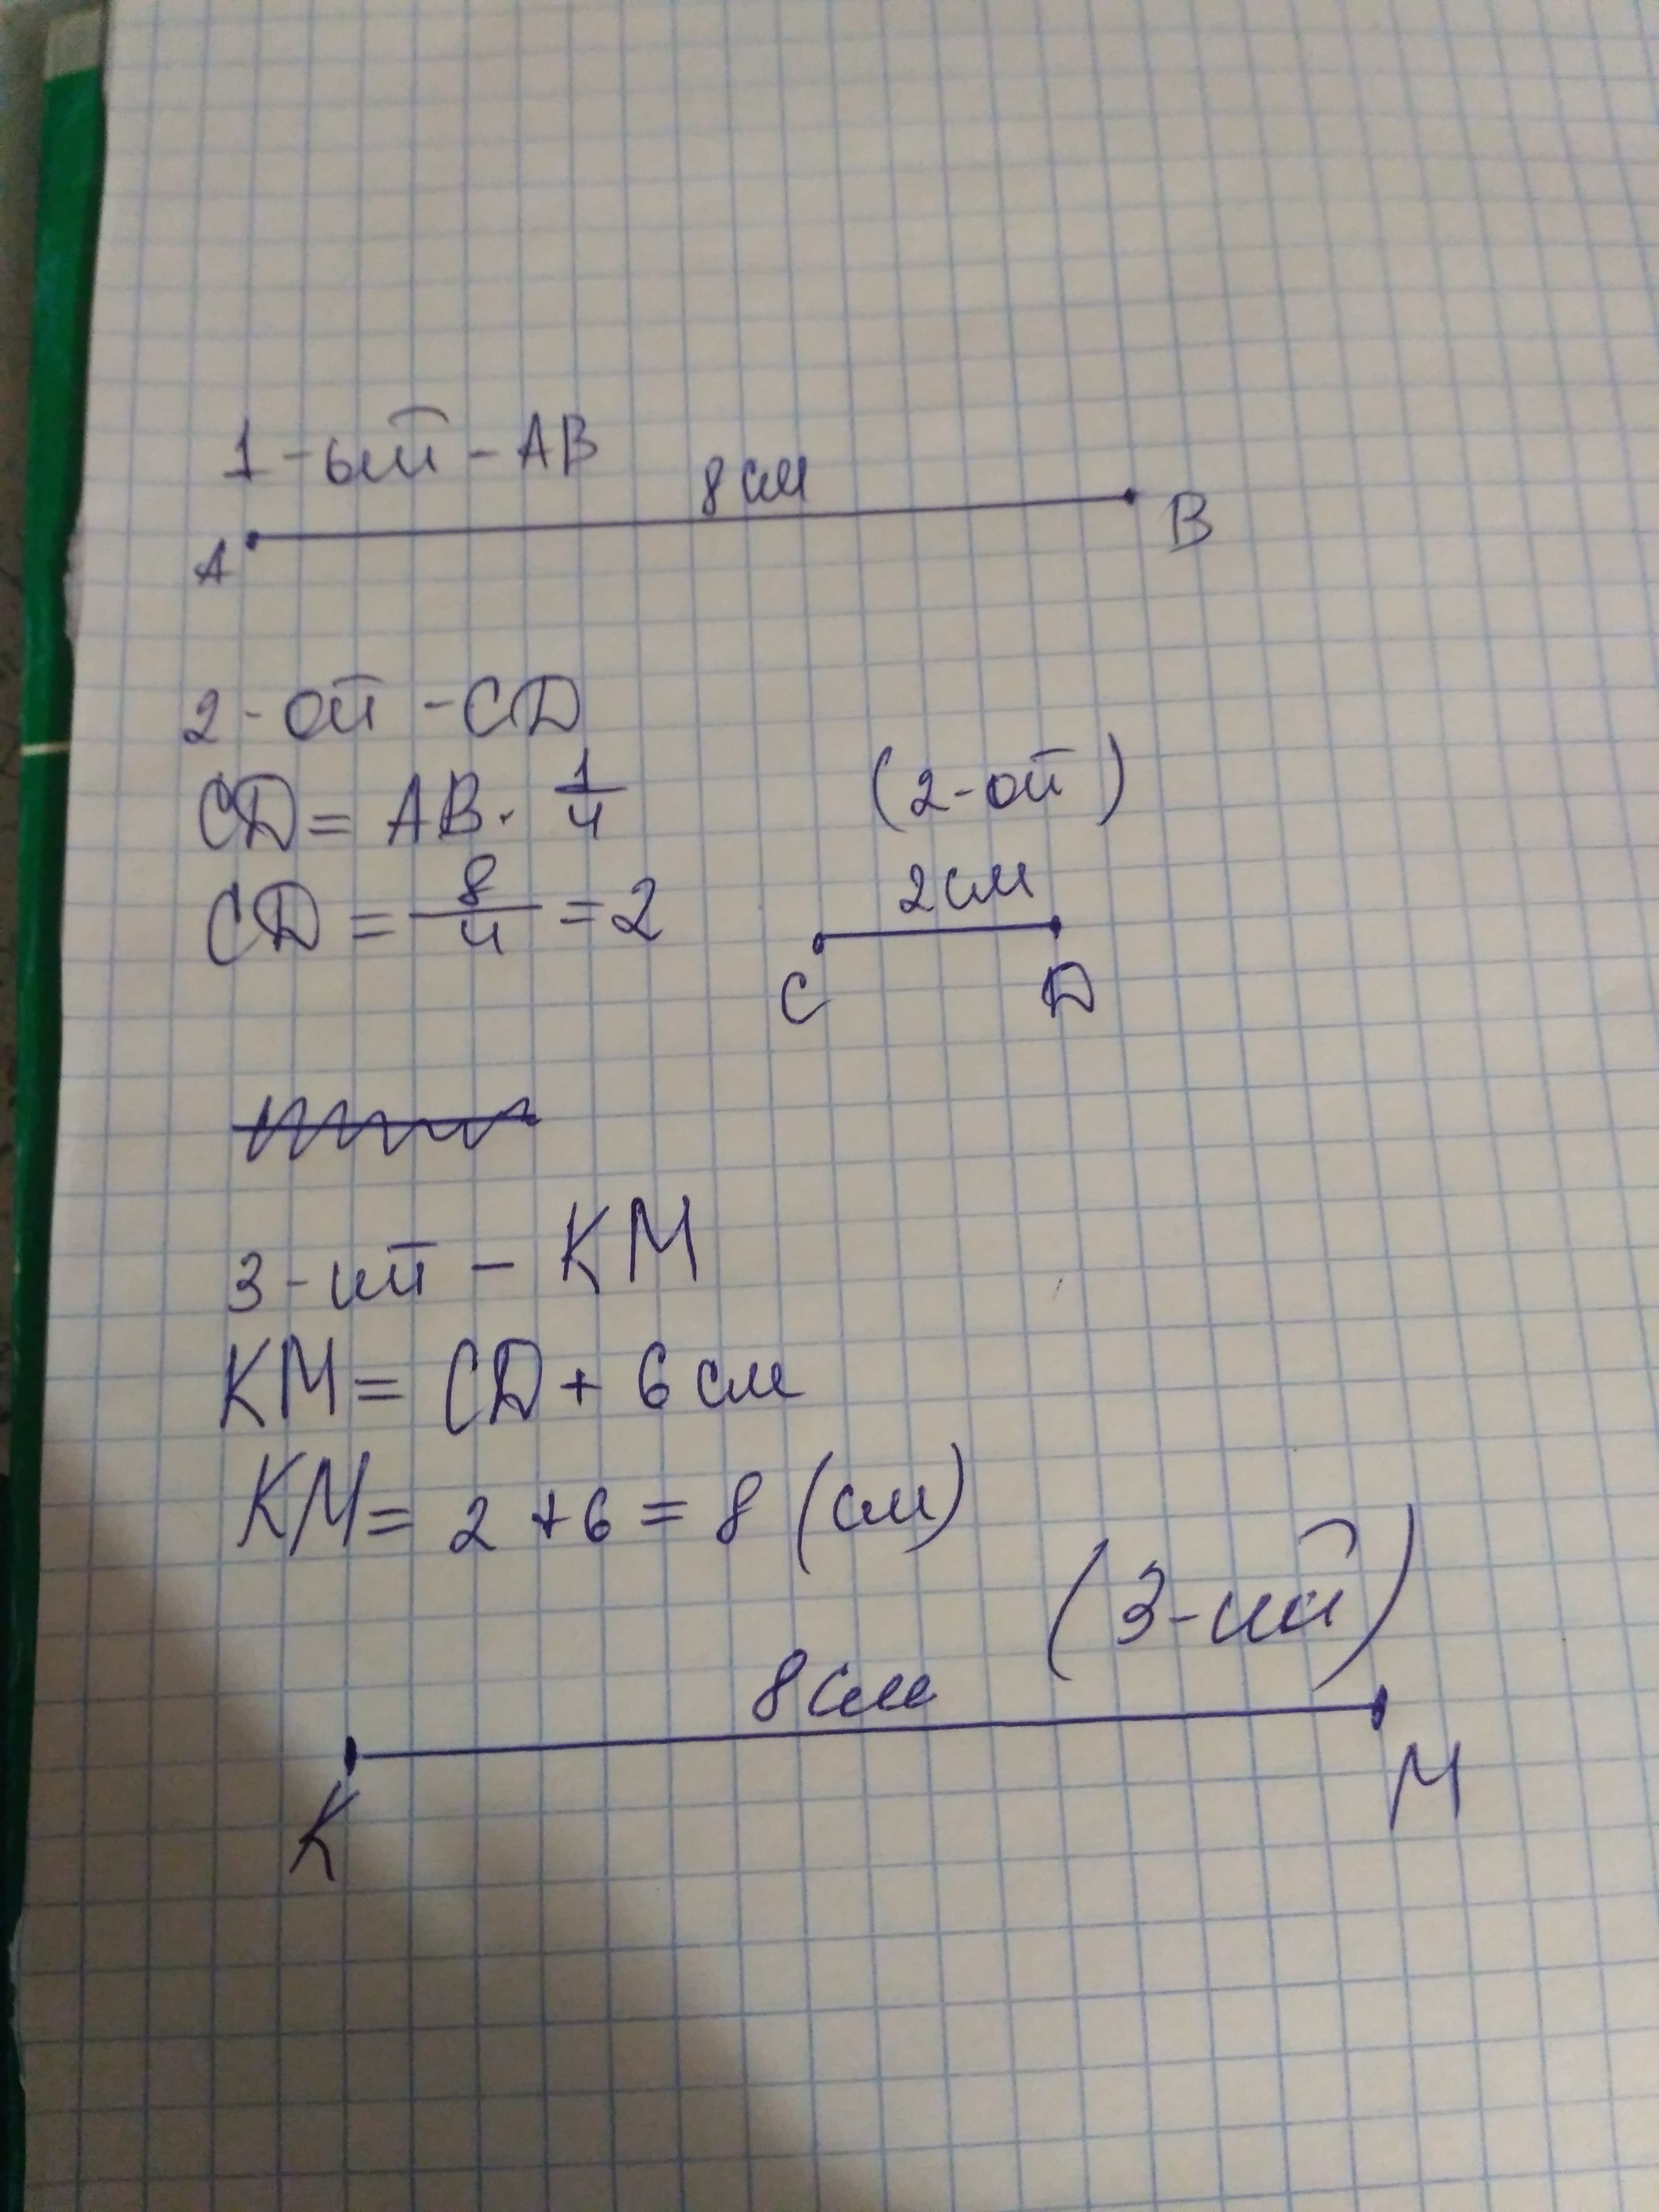 1-ый - AB
8 см
A B
2-ой - CD
CD = AB · 1/4
(2-ой)
CD = 8/4 = 2
2 см
C D
3-ий - KM
KM = CD + 6 см
KM = 2 + 6 = 8 (см)
(3-ий)
8 см
K M